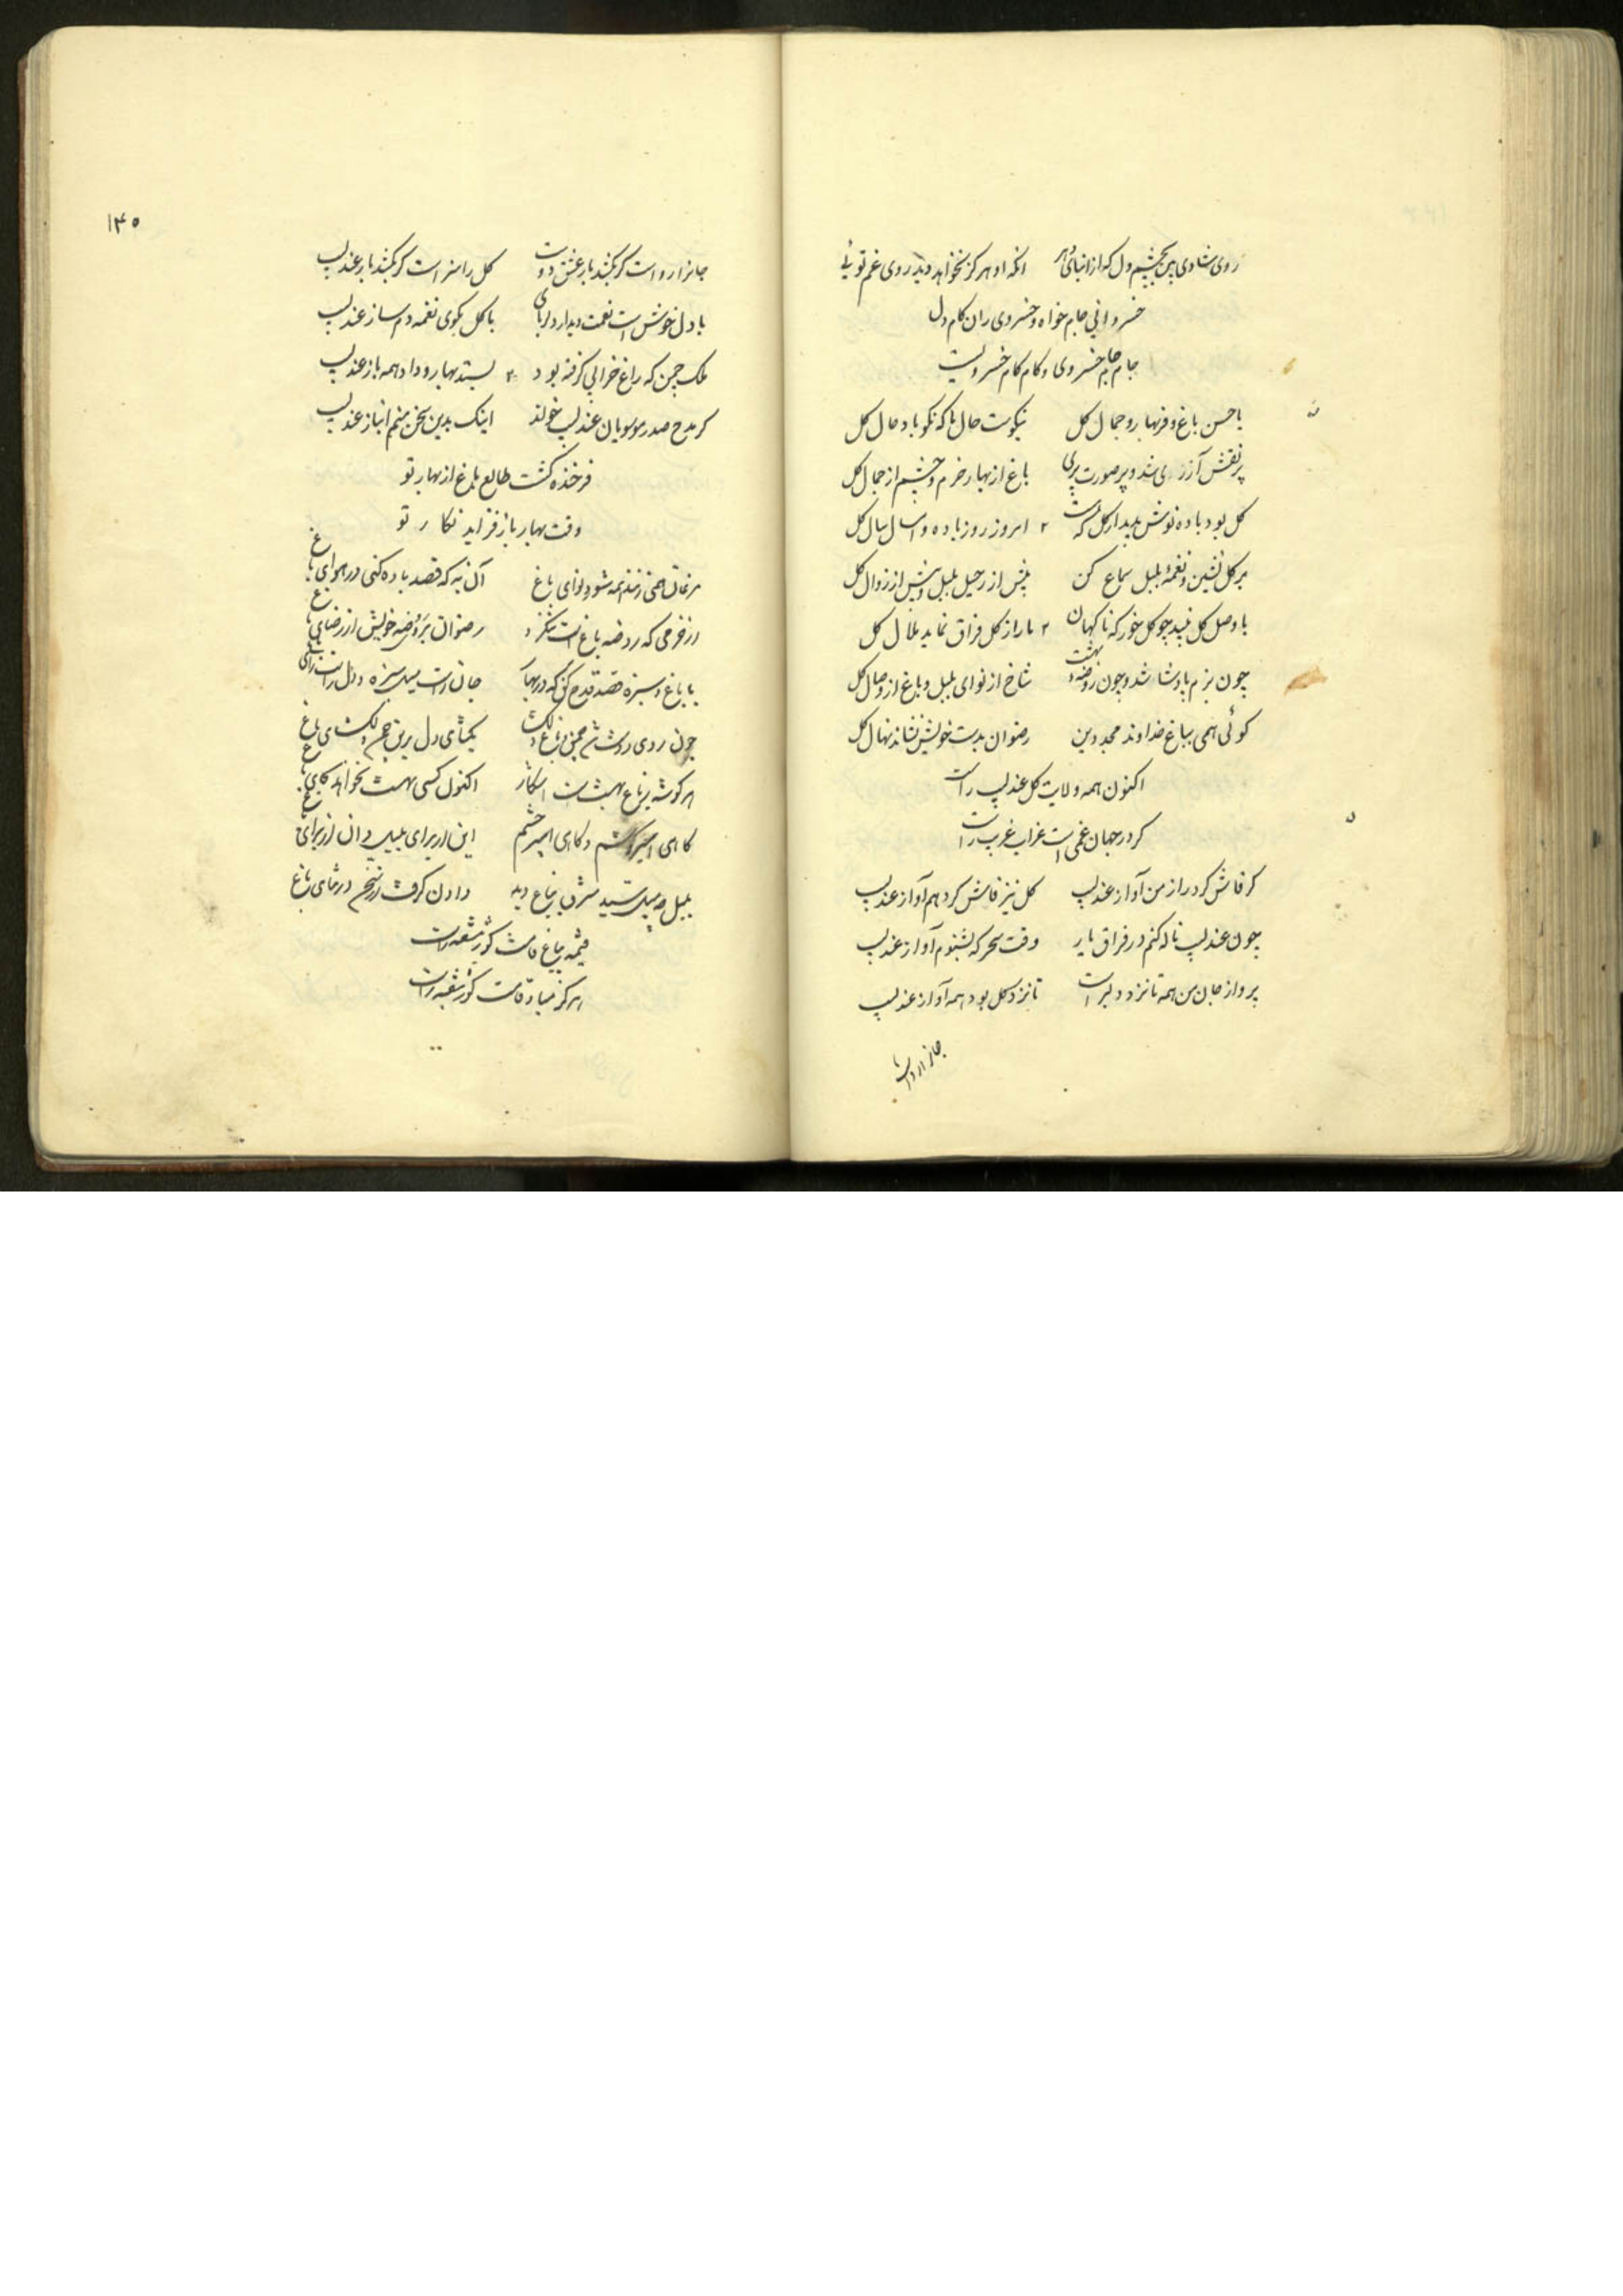 روی شادی بین بچشم دل که از ابنای دهر انکه او هرکز نخواهد دید روی غم توئی
خسروانی جام خواه و خسروی ران کام دل
جام جام خسروی و کام کام خسرویست
با حسن باغ و فر بهار و جمال کل نیکوست حال ما که نکو باد حال کل
پر نقش آزری شد و پر صورت پری باغ از بهار خرم و چشم از جمال کل
کل بود باده نوش بدیدار کل که امروز روز باده و امسال سال کل
بر کل نشین و نغمهٔ بلبل سماع کن پیش از رحیل بلبل و پیش از زوال کل
با وصل کل نبید چو کل خور که ناکهان ما را ز کل فراق نماید ملال کل
چون بزم پادشا شد و چون روضهٔ بهشت شاخ از نوای بلبل و باغ از وصال کل
کوئی همی بباغ خداوند مجد دین رضوان بدست خویش نشاند نهال کل
اکنون همه ولایت کل عندلیب راست
کر در جهان غمی است غراب غریب راست
کر فاش کرد راز من آواز عندلیب کل نیز فاش کرد هم آواز عندلیب
چون عندلیب ناله کنم در فراق یار وقت سحر که بشنوم آواز عندلیب
پرواز جان من همه تا نزد دلبر است تا نزد کل بود همه آواز عندلیب
جانرا رواست
۱۴۵
جانرا رواست کر بکشد بار عشق دوست کل را سزاست کر بکشد بار عندلیب
با دل خوش است نعمت دیدار دلربای با کل بکوی نغمه دم ساز عندلیب
ملک چمن که زاغ خزانی کرفته بود بستد بهار و داد همه باز عندلیب
کر مدح صدر موسویان عندلیب خواند اینک بدین سخن منم انباز عندلیب
فرخنده کشت طالع باغ از بهار تو
وقت بهار باز فزاید نکار تو
مرغان همی زنند همه شب نوای باغ آن به که قصد باده کنی در هوای باغ
از خرمی که روضه باغ است نکذرد رضوان بروضه خویش از رضای باغ
با باغ و سبزه قصد قدم کن که در بهار جان راست میل سبزه و دل راست رای باغ
چون روی دوستان چمن باغ دلکش بکشای دل بروی چمن دلکشای باغ
هر کوشه ز باغ بهشت است آشکار اکنون کسی بهشت نخواهد بجای باغ
بلبل مدیح سید مشرق بباغ دید دادن کرفت در سخن در ثنای باغ